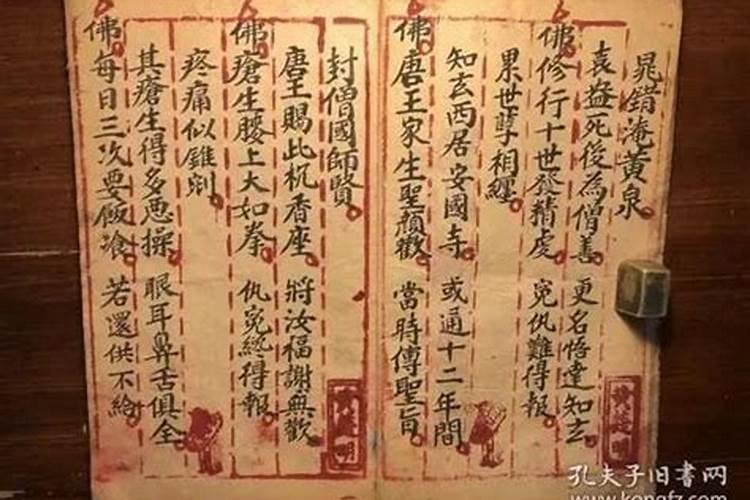 晁錯淹黃泉
袁盎死後為僧善 更名悟達知玄
佛修行十世發精虔 冤仇難得報
累世孽相纏
知玄西居安國寺 或通十二年間
佛唐王家生聖顏歡 當時傳聖旨
封僧國師賢
唐王賜此枕香座 將汝福謝無歡
佛瘡生腰上大如拳 仇冤終得報
疼痛似錐剜
其瘡生得多悪操 眼耳鼻舌俱全
佛每日三次要飯飡 若還供不給
孔夫子旧书网